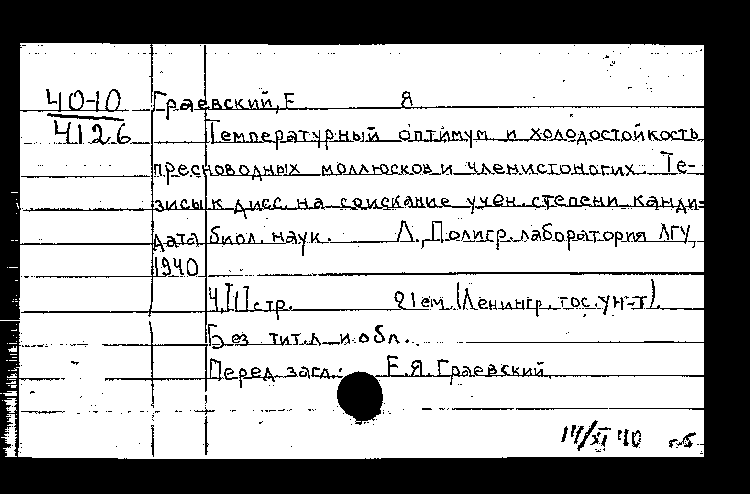 40-10
4126
Граевский, Е Я
Температурный оптимум и холодостойкость
пресноводных моллюсков и членистоногих. Те-
зисы к дисс. на соискание учен. степени канди-
дата биол. наук. Л., Полигр. лаборатория ЛГУ,
1940
4, [1] стр. 21 см. (Ленингр. гос. ун-т).
Без тит. л. и обл.
Перед загл.: Е. Я. Граевский
14/XI 40